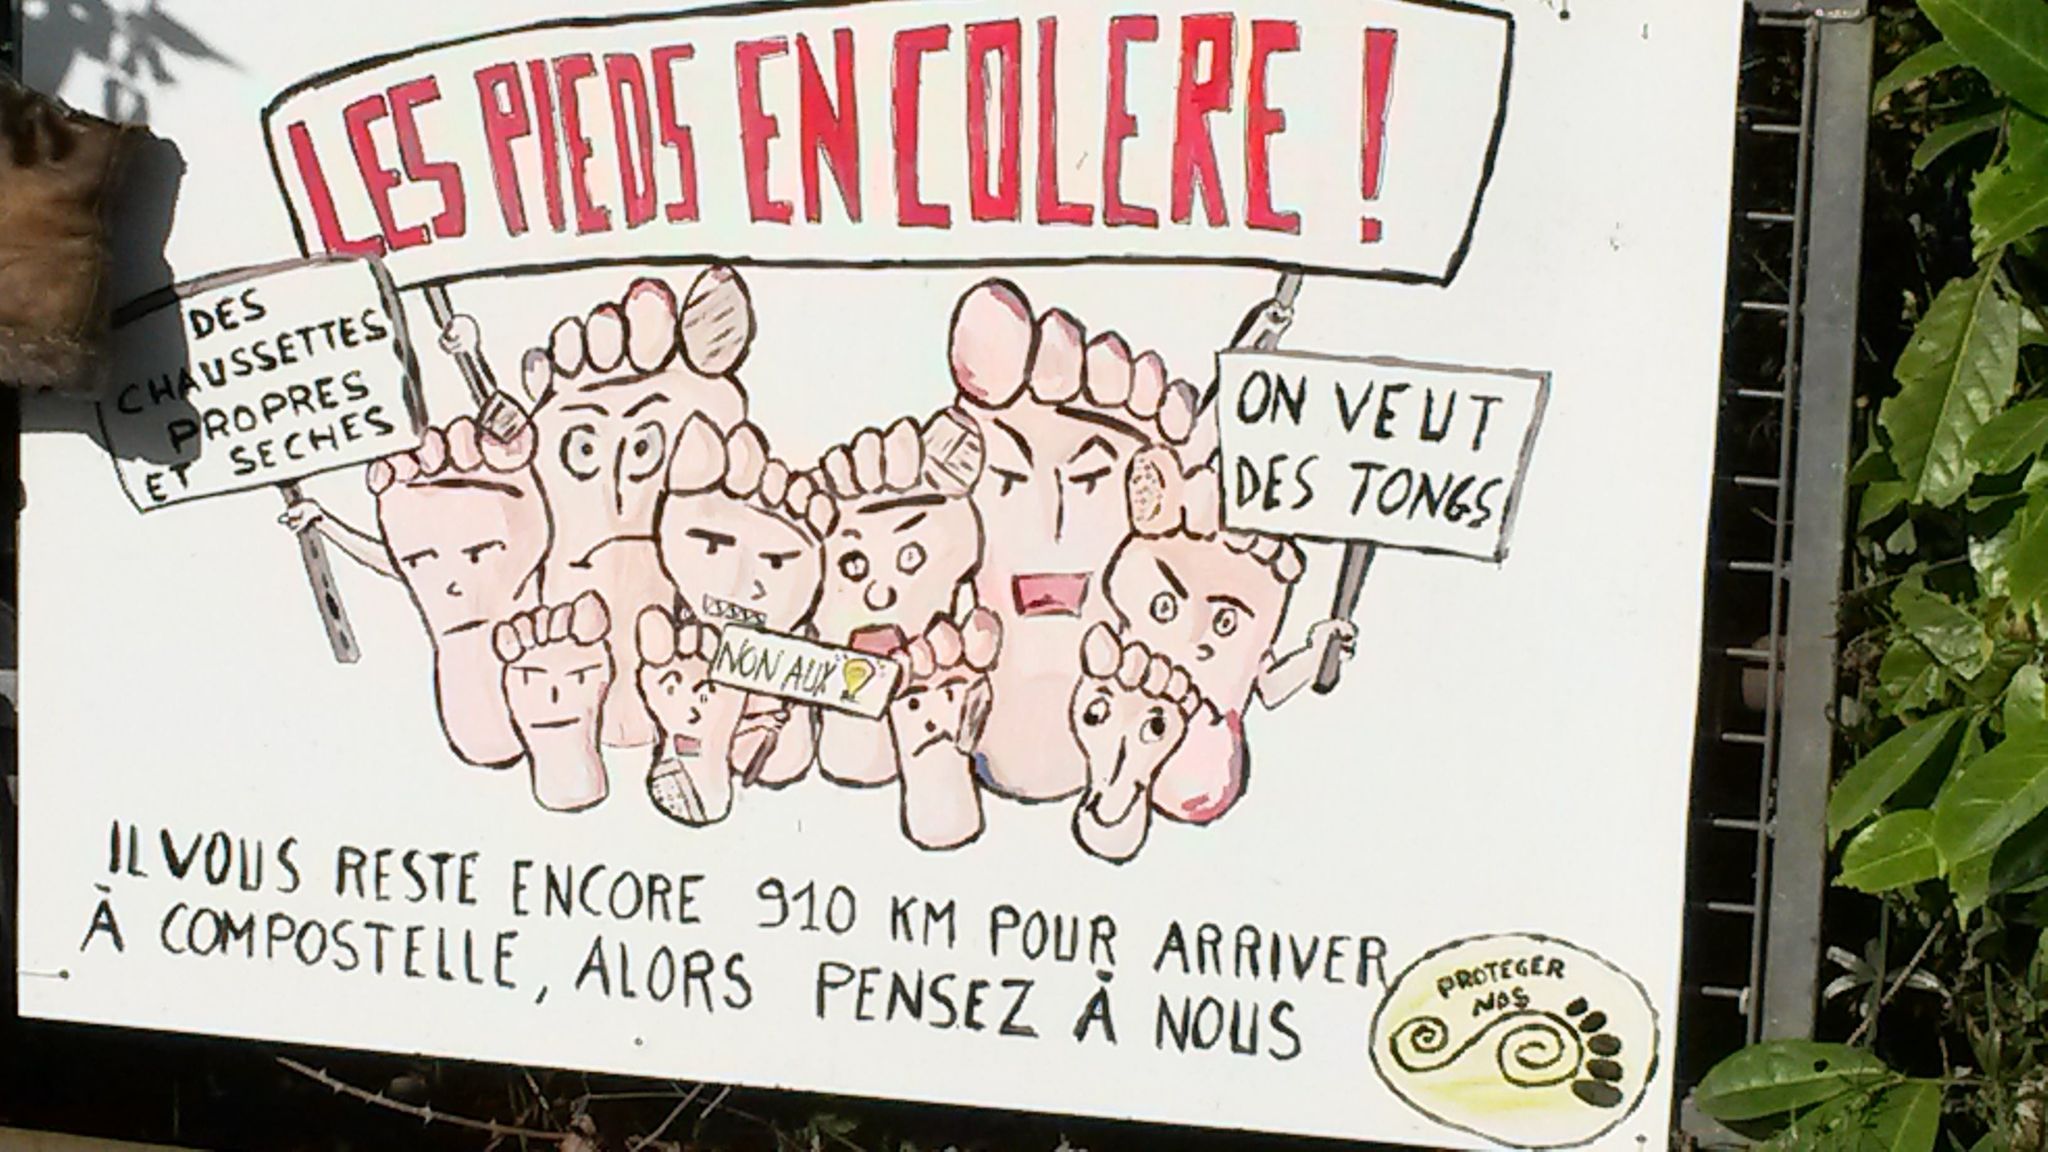 LES PIEDS EN COLERE !
DES
CHAUSSETTES
PROPRES
ET SECHES
ON VEUT
DES TONGS
NON AUX
IL VOUS RESTE ENCORE 910 KM POUR ARRIVER
À COMPOSTELLE, ALORS PENSEZ À NOUS
PROTEGER
NOS